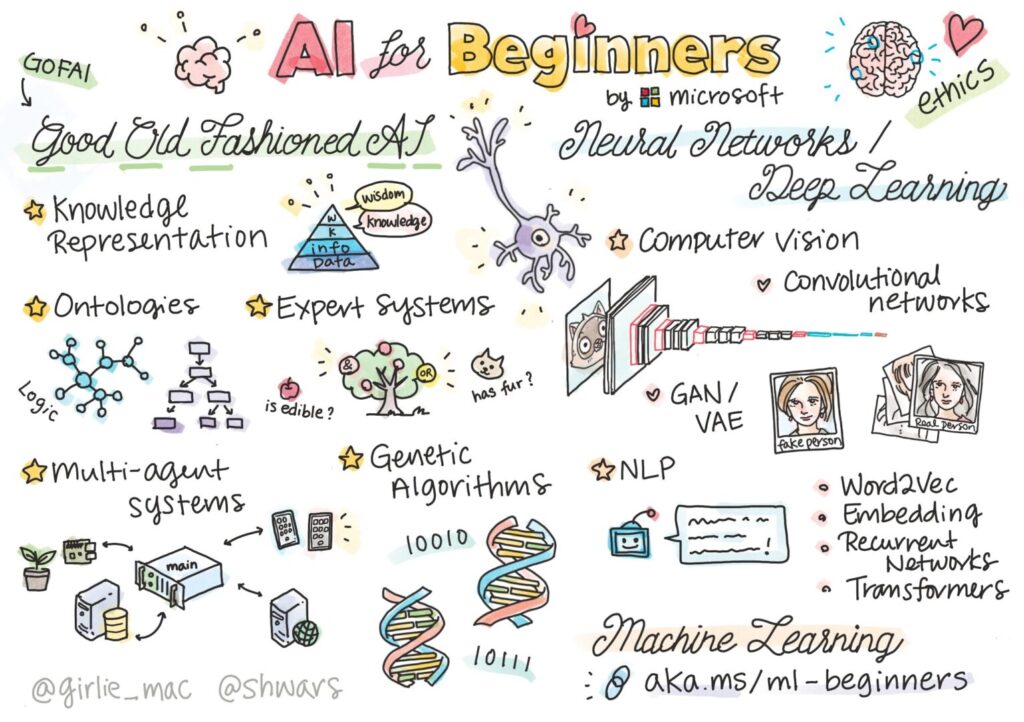 AI for Beginners
by microsoft
ethics
GOFAI
Good Old Fashioned AI
Knowledge
Representation
wisdom
knowledge
W
K
info
Data
Ontologies
Logic
Expert Systems
&
OR
is edible?
has fur?
Multi-agent
systems
main
Genetic
Algorithms
10010
10111
Neural Networks /
Deep Learning
Computer Vision
Convolutional
networks
GAN /
VAE
fake person
Real person
NLP
Word2Vec
Embedding
Recurrent
Networks
Transformers
Machine Learning
aka.ms/ml-beginners
@girlie_mac @shwars